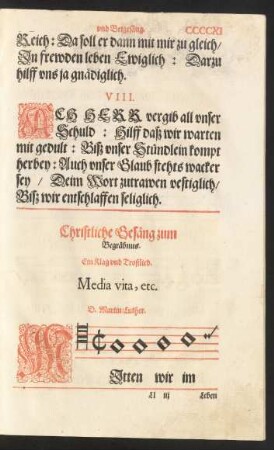 vnd Betgesäng. CCCCXI
Reich: Da soll er dann mit mir zu gleich/
In frewden leben Ewiglich: Darzu
hilff vns ja gnädiglich.
VIII.
ACH HERR vergib all vnser
Schuld: Hilff daß wir warten
mit gedult: Biß vnser Stündlein kompt
herbey: Auch vnser Glaub stehts wacker
sey/ Deim Wort zutrawen vestiglich/
Biß wir entschlaffen seliglich.
Christliche Gesäng zum
Begräbnus.
Ein Klag vnd Trostlied.
Media vita, etc.
D. Martin Luther.
MItten wir im
Ll iij Leben